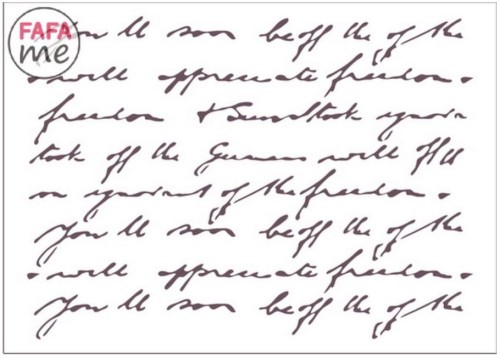 FAFA
me
You ll soon be off the of the
. will appreciate freedom .
freedom + Sunstook ignorin
took off the Germans will off ll
on ignorant of the freedom .
You ll soon be off the of the
. will appreciate freedom .
You ll soon be off the of the